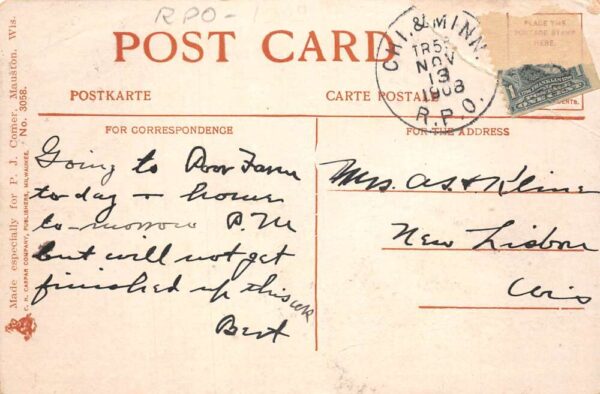 RPO-
POST CARD
PLACE THE
POSTAGE STAMP
HERE.
CHI. & MINN.
TR 55
NOV
13
1908
R.P.O.
1
POSTKARTE
CARTE POSTALE
FOR CORRESPONDENCE
FOR THE ADDRESS
Going to Poor Farm
to day - home
to-morrow P.M
but will not get
finished up this wk
Bert
Mrs. Kline
New Lisbon
Wis
Made especially for P. J. Comer, Mauston, Wis.
No. 3058.
E. C. KROPP COMPANY, PUBLISHERS, MILWAUKEE.